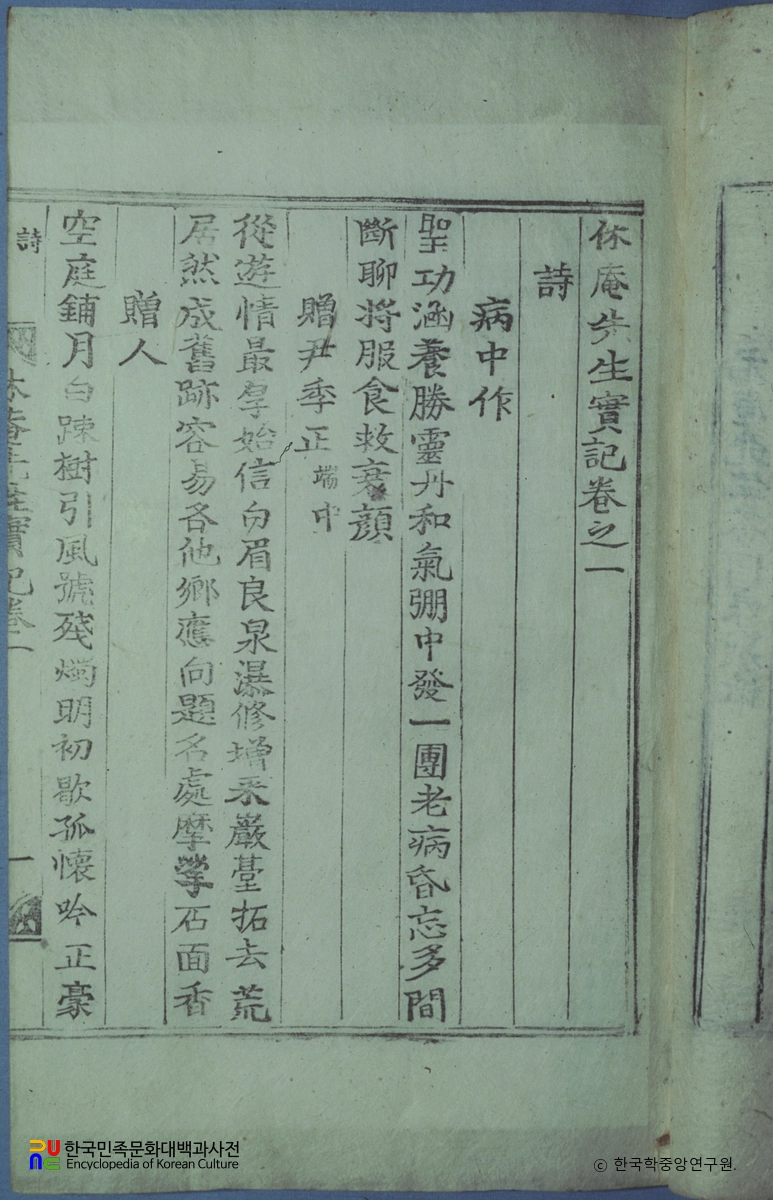 休庵先生實記卷之一
詩
病中作
聖功涵養勝靈丹和氣弸中發一團老病昏忘多間
斷聊將服食救衰顔
贈尹季正端中
從遊情最厚始信白眉良泉瀑修增采巖臺拓去荒
居然成舊跡容易各他鄉應向題名處摩挲石面香
贈人
空庭鋪月白踈樹引風號殘燭明初歇孤懷吟正豪
詩 休庵先生實記卷一 一
한국민족문화대백과사전
Encyclopedia of Korean Culture
© 한국학중앙연구원.